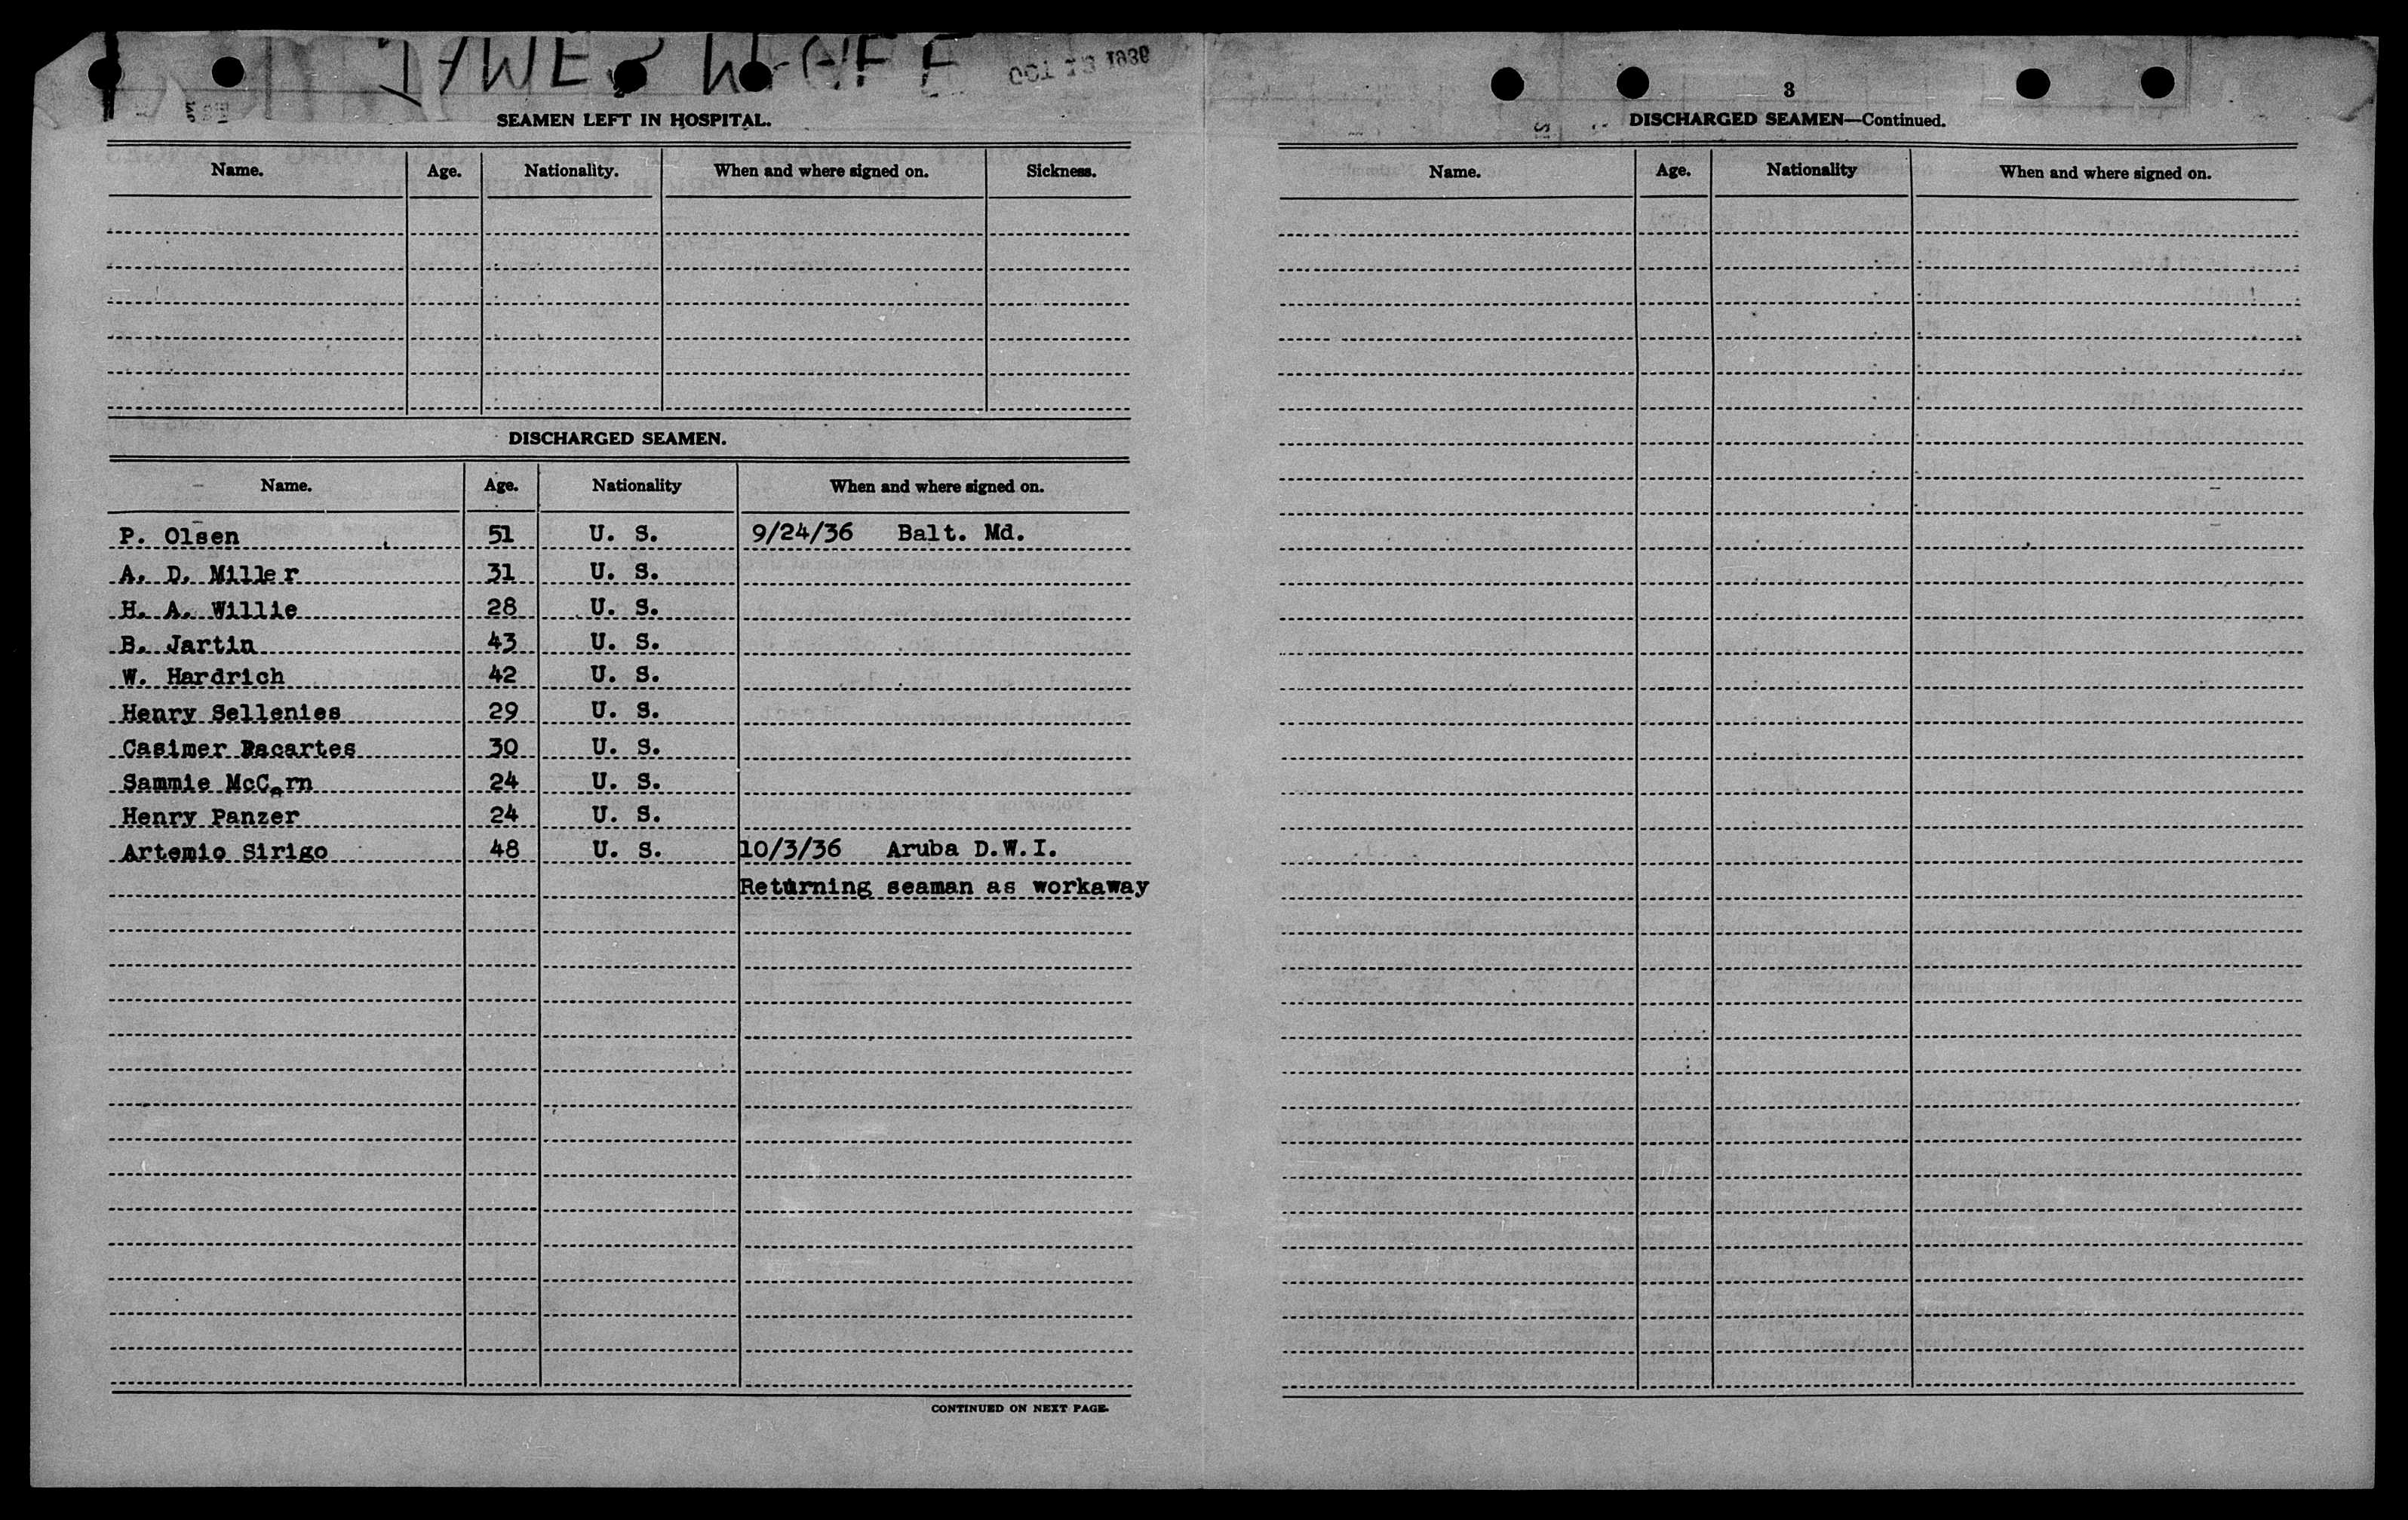 SEAMEN LEFT IN HOSPITAL.
Name. Age. Nationality. When and where signed on. Sickness.
DISCHARGED SEAMEN.
Name. Age. Nationality When and where signed on.
P. Olsen 51 U. S. 9/24/36 Balt. Md.
A. D. Miller 31 U. S.
H. A. Willie 28 U. S.
B. Jartin 43 U. S.
W. Hardrich 42 U. S.
Henry Sellenies 29 U. S.
Casimer 30 U. S.
Sammie 24 U. S.
Henry Panzer 24 U. S.
Artemio Sirigo 48 U. S. 10/3/36 Aruba D.W.I.
Returning seaman as workaway
CONTINUED ON NEXT PAGE.
3
DISCHARGED SEAMEN—Continued.
Name. Age. Nationality When and where signed on.